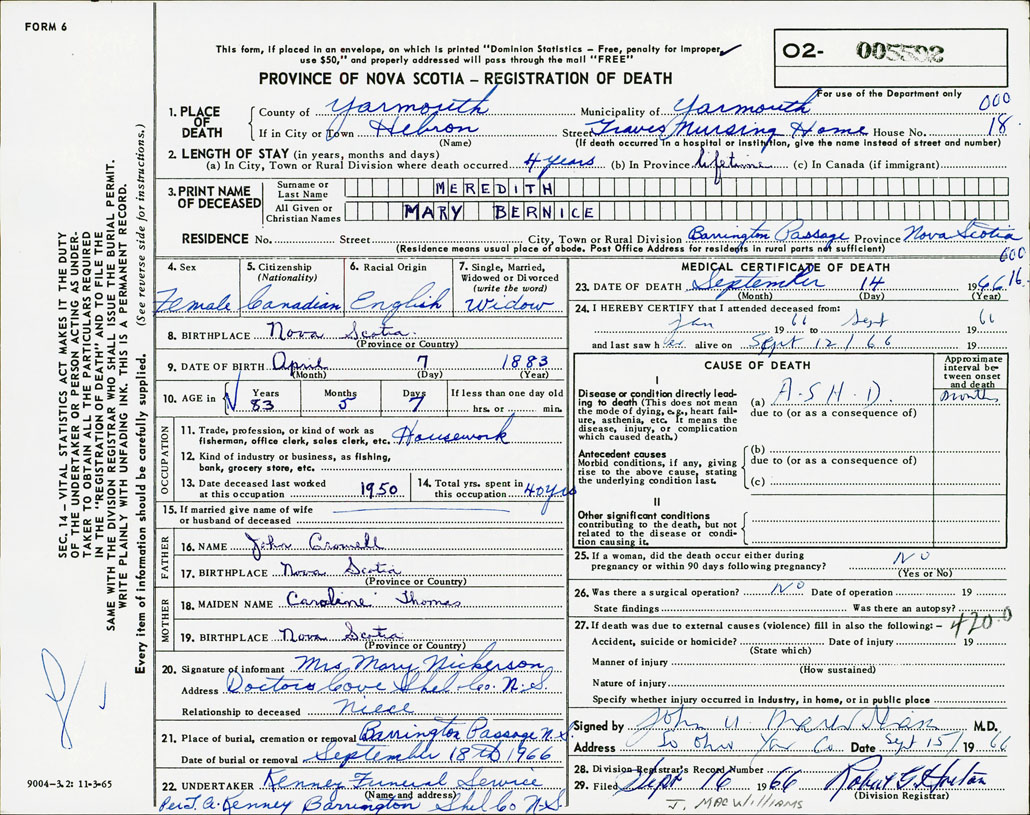 FORM 6
This form, if placed in an envelope, on which is printed "Dominion Statistics – Free, penalty for improper
use $50," and properly addressed will pass through the mail "FREE"
PROVINCE OF NOVA SCOTIA – REGISTRATION OF DEATH
O2- 005592
For use of the Department only
000
18
1. PLACE OF DEATH
County of Yarmouth Municipality of Yarmouth
If in City or Town Hebron Street Traves Nursing Home House No.
(Name) (If death occurred in a hospital or institution, give the name instead of street and number)
2. LENGTH OF STAY (in years, months and days)
(a) In City, Town or Rural Division where death occurred 4 years (b) In Province lifetime (c) In Canada (if immigrant)
3. PRINT NAME OF DECEASED
Surname or Last Name MEREDITH
All Given or Christian Names MARY BERNICE
RESIDENCE No. Street City, Town or Rural Division Barrington Passage Province Nova Scotia
(Residence means usual place of abode. Post Office Address for residents in rural parts not sufficient)
000
16
4. Sex Female
5. Citizenship (Nationality) Canadian
6. Racial Origin English
7. Single, Married, Widowed or Divorced (write the word) Widow
8. BIRTHPLACE Nova Scotia
(Province or Country)
9. DATE OF BIRTH April 7 1883
(Month) (Day) (Year)
10. AGE in Years 83 Months 5 Days 7 If less than one day old hrs. or min.
OCCUPATION
11. Trade, profession, or kind of work as fisherman, office clerk, sales clerk, etc. Housework
12. Kind of industry or business, as fishing, bank, grocery store, etc.
13. Date deceased last worked at this occupation 1950
14. Total yrs. spent in this occupation 40 yrs
15. If married give name of wife or husband of deceased
FATHER
16. NAME John Crowell
17. BIRTHPLACE Nova Scotia
(Province or Country)
MOTHER
18. MAIDEN NAME Caroline Thomas
19. BIRTHPLACE Nova Scotia
(Province or Country)
20. Signature of informant Mrs. Mary Nickerson
Address Doctors Cove Shel. Co. N.S.
Relationship to deceased Niece
21. Place of burial, cremation or removal Barrington Passage N.S.
Date of burial or removal September 18th 1966
22. UNDERTAKER Kenney Funeral Service
(Name and address)
Per J. A. Kenney Barrington Shel Co N.S.
MEDICAL CERTIFICATE OF DEATH
23. DATE OF DEATH September 14 1966
(Month) (Day) (Year)
24. I HEREBY CERTIFY that I attended deceased from:
Jan 19 66 to Sept 19 66
and last saw her alive on Sept 12 / 66 19
CAUSE OF DEATH
Approximate interval between onset and death
I
Disease or condition directly leading to death (This does not mean the mode of dying, e.g., heart failure, asthenia, etc. It means the disease, injury, or complication which caused death.)
(a) A.S.H.D. months
due to (or as a consequence of)
Antecedent causes
Morbid conditions, if any, giving rise to the above cause, stating the underlying condition last.
(b)
due to (or as a consequence of)
(c)
II
Other significant conditions
contributing to the death, but not related to the disease or condition causing it.
25. If a woman, did the death occur either during pregnancy or within 90 days following pregnancy? No
(Yes or No)
26. Was there a surgical operation? No Date of operation 19
State findings Was there an autopsy?
27. If death was due to external causes (violence) fill in also the following: –
420.0
Accident, suicide or homicide? Date of injury 19
(State which)
Manner of injury
(How sustained)
Nature of injury
Specify whether injury occurred in industry, in home, or in public place
Signed by John M.D.
Address So Ohio Yar Co. Date Sept 15 / 1966
28. Division Registrar's Record Number
29. Filed Sept 16 1966 Robert G. Horton
(Division Registrar)
J. MACWILLIAMS
SEC. 14 – VITAL STATISTICS ACT MAKES IT THE DUTY
OF THE UNDERTAKER OR PERSON ACTING AS UNDER-
TAKER TO OBTAIN ALL THE PARTICULARS REQUIRED
IN THE "REGISTRATION OF DEATH" AND TO FILE THE
SAME WITH THE DIVISION REGISTRAR WHO SHALL ISSUE THE BURIAL PERMIT.
WRITE PLAINLY WITH UNFADING INK. THIS IS A PERMANENT RECORD.
Every item of information should be carefully supplied. (See reverse side for instructions.)
9004-3.2: 11-3-65